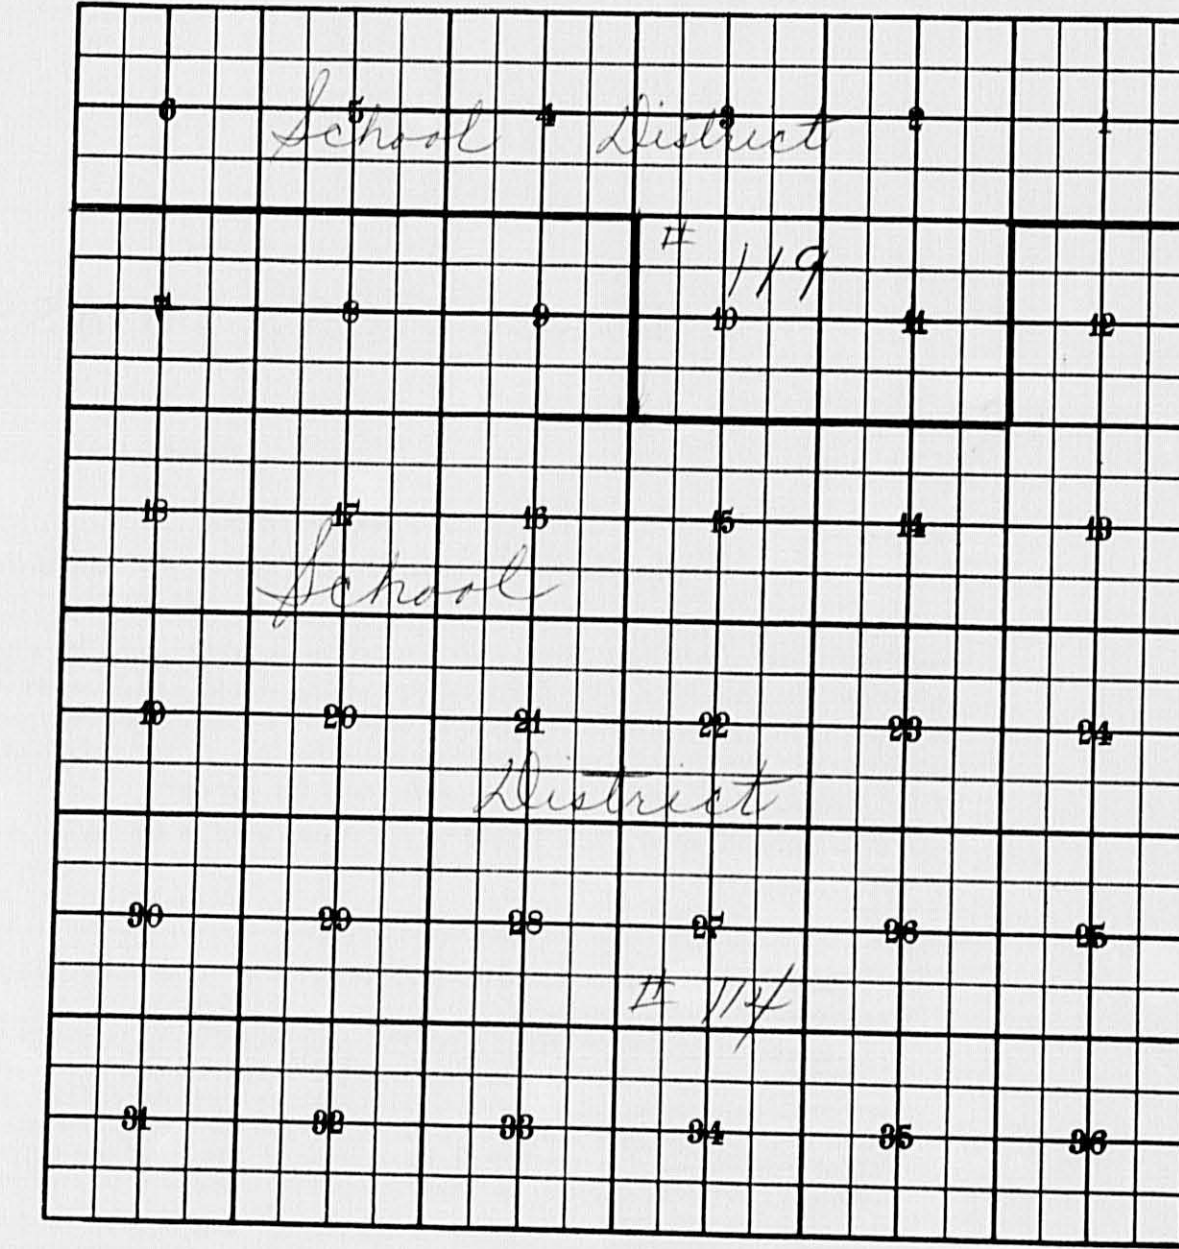 6 5 4 3 2 1
School District
# 119
7 8 9 10 11 12
18 17 16 15 14 13
School
19 20 21 22 23 24
District
30 29 28 27 26 25
# 114
31 32 33 34 35 36